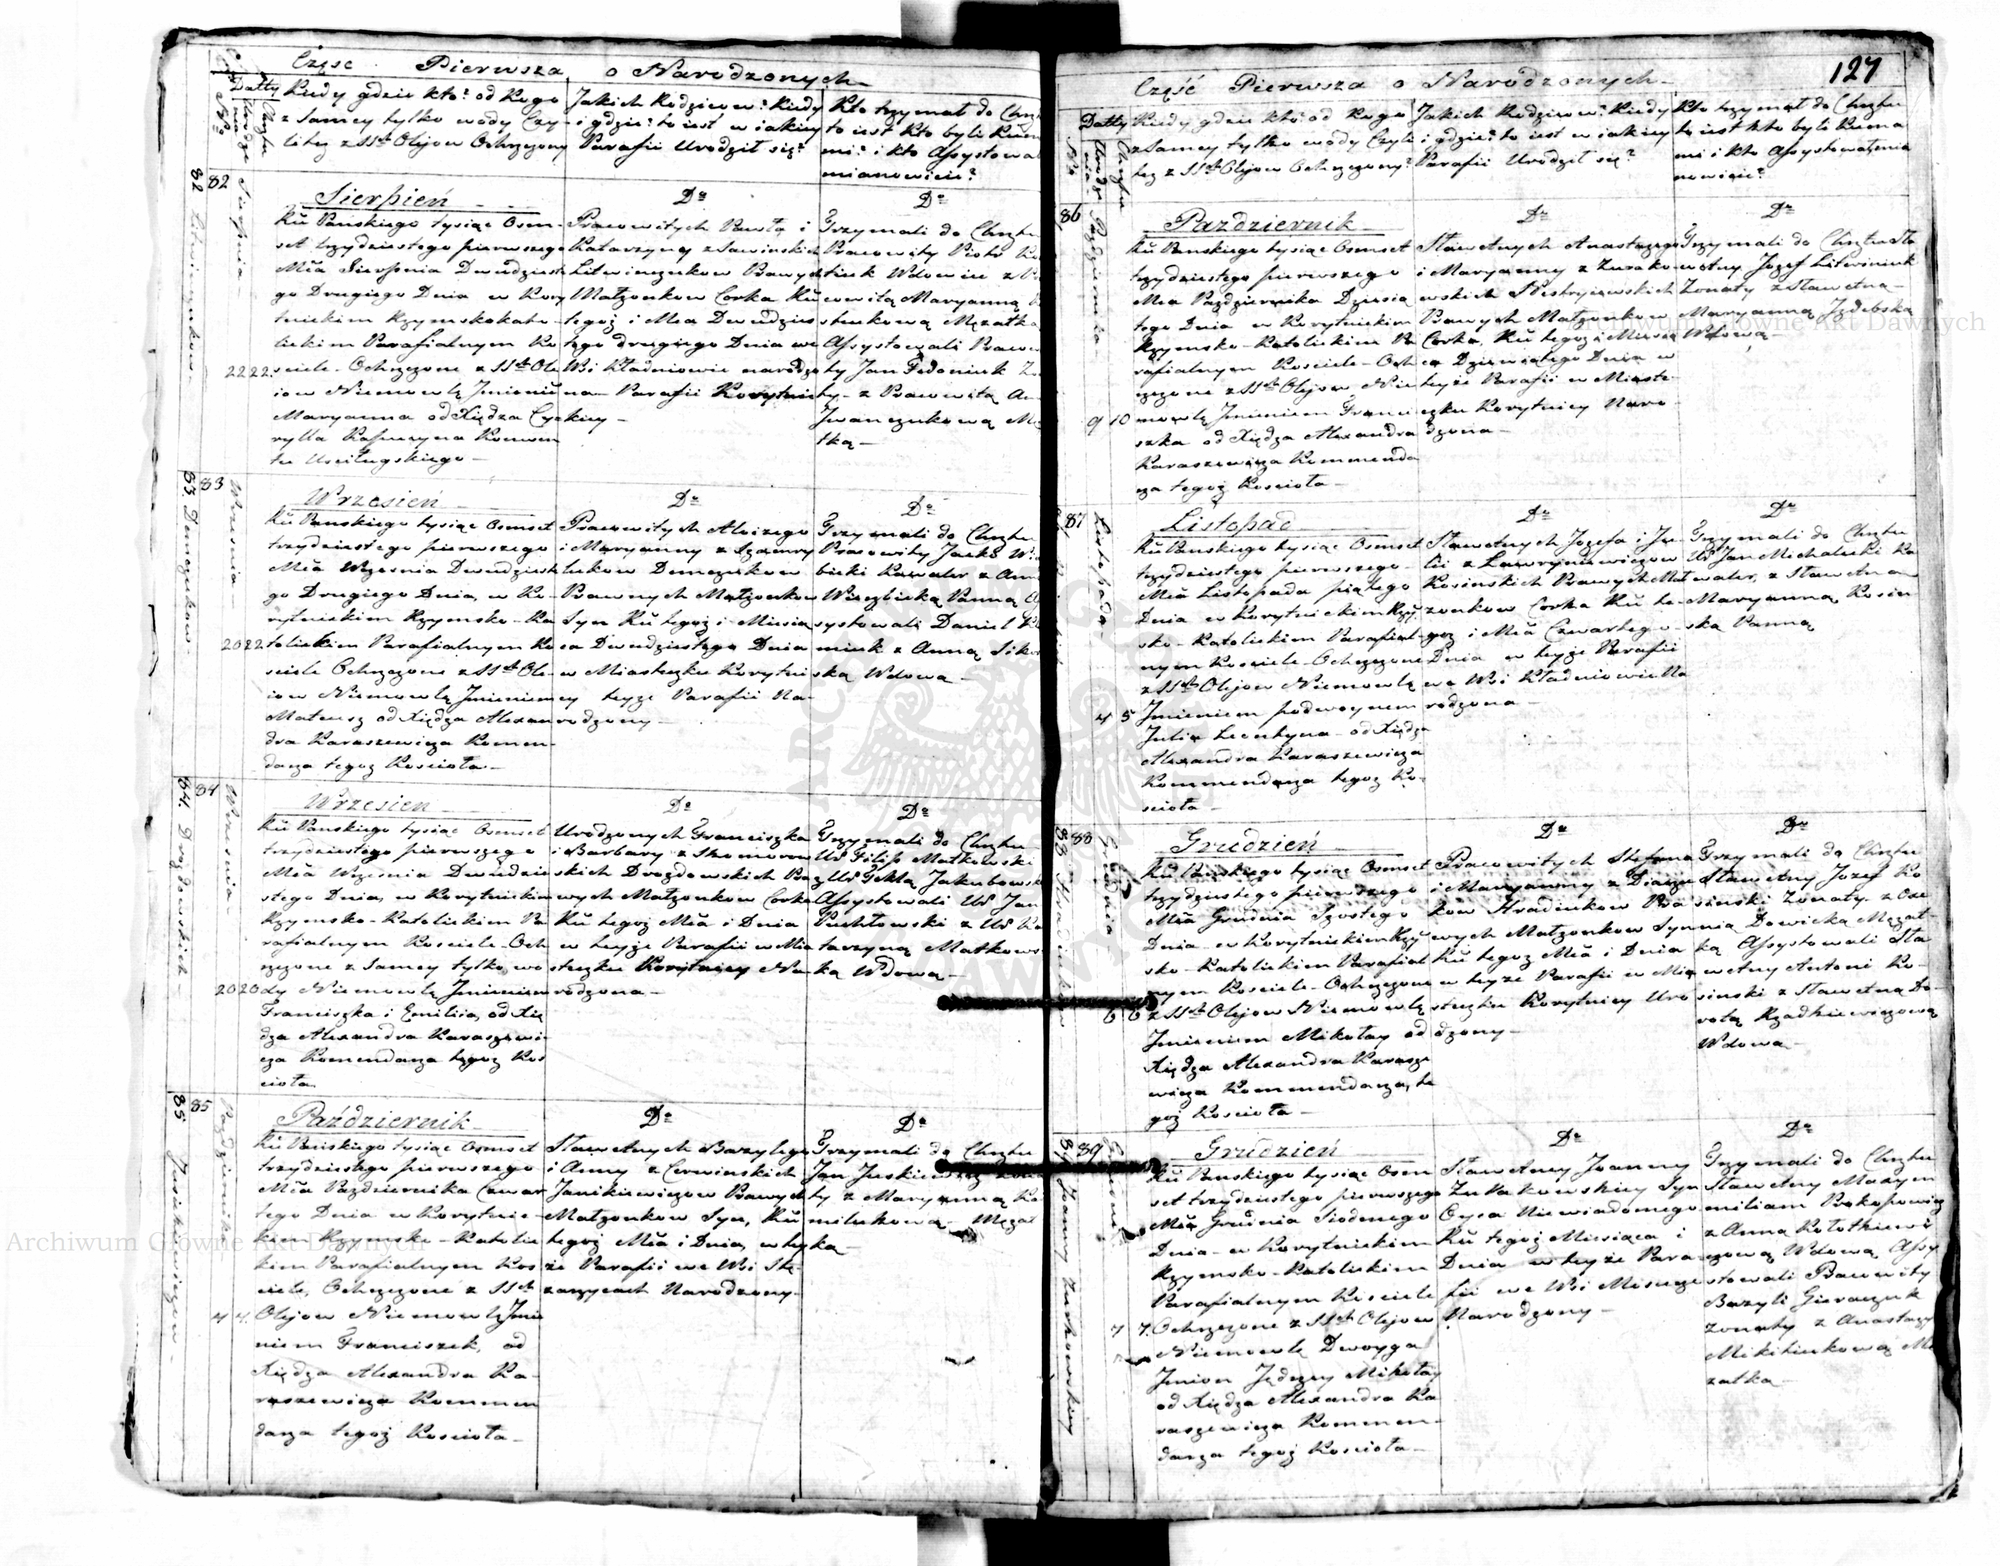 Część Pierwsza o Narodzonych
Datty
Kiedy gdzie kto? od Kogo
z Samey tylko wody Czy
liteż z SSch Olejow Ochrzczony
Jakich Rodzicow? Kiedy
i gdzie? to iest w iakiey
Parafii Urodził się?
Kto trzymał do Chrz
to iest Kto byli Kum
mi? i kto Assystował
mianowicie?
82
82
Sierpnia
Sierpień
Ru Panskiego tysiąc Osm
set trzydziestego pierwszego
Mca Sierpnia Dwudziest
go Drugiego Dnia w Kory
tnickim Rzymskokato
lickim Parafialnym Ko
22 22. sciele Ochrzczone z SSch Ole
iow Niemowlę Jmieniem
Maryanna od Xiędza Cy
rylla
Uscilugskiego
Do
Pracowitych Pawła i
Katarzyny z Sawinskich
Litwinczukow Prawych
Małzonkow Corka Ru
tegoż i Mca Dwudzies
tego drugiego Dnia we
Wsi Kładniowie narodzo
na Parafii Korytnic
kiey
Do
Trzymali do Chrztu
Pracowity Piotr
Wdowiec z
cowitą Maryanną
Mężatką
Assystowali Praco
ty Jan Fedoniuk
ty z Pracowitą
Jwanczukową Mę
tką
83
83
Września
Wrzesień
Ru Panskiego tysiąc Osmset
trzydziestego pierwszego
Mca Wrzesnia Dwudziest
go Drugiego Dnia, w Ko
rytnickim Rzymsko-Ka
20 22 tolickim Parafialnym Ko
sciele Ochrzczone z SSch Ole
iow Niemowlę Jmieniem
Mateusz od Xiędza Alexan
dra Karaszewicza Komen
darza tegoż Kościoła
Do
Pracowitych Aloizego
i Maryanny z
Demczukow
Prawnych Małżonkow
Syn Ru tegoż i Miesią
ca Dwudziestego Dnia
w Miasteczku Korytni
cy teyże Parafii Na
rodzony
Do
Trzymali do Chrztu
Pracowity Jacko
bicki Kawaler z
Wierzbicką Panną
systowali Daniel
miuk z Anną
ską Wdową
84
84. Drozdowskich
Września
Wrzesien
Ru Panskiego tysiąc Osmset
trzydziestego pierwszego
Mca Wrzesnia Dwudzie
stego Dnia, w Korytnickim
Rzymsko-Katolickim Pa
rafialnym Kosciele Och
rzczone z Samey tylko wo
20 20 dy Niemowlę Jmieniem
Franciszka i Emilia, od Xię
dza Alexandra Karaszewi
cza Komendarza tegoż Kos
cioła
Do
Urodzonych Franciszka
i Barbary z Skomorow
skich Drozdowskich Pra
wych Małzonkow Corka
Ru tegoż Mca i Dnia
w teyże Parafii w Mia
steczku Korytnicy Na
rodzona
Do
Trzymali do Chrztu
Ur Filip Matkowski
z Ur Teklą Jakubowsk
Assystowali Ur Jan
Puchłowski z Ur Ka
tarzyną Matkows
ką Wdową
85
85
Października
Październik
Ru Pańskiego tysiąc Osmset
trzydziestego pierwszego
Mca Pazdziernika Czwar
tego Dnia w Korytnic
kim Rzymsko-Katolic
kim Parafialnym Kos
ciele, Ochrzczone z SSch
4 4. Olejow Niemowlę Jmie
niem Franciszek, od
Xiędza Alexandra Ka
raszewicza Kommen
darza tegoż Kościoła
Do
Sławetnych Bazylego
i Anny z Czerwinskich
Janikiewiczow Prawych
Małzonkow Syn, Ru
tegoż Mca i Dnia, w tey
że Parafii we Wsi Stę
zarzycach Narodzony
Do
Trzymali do Chrztu
Jan Juskiewicz Żona
ty z Maryanną Ka
milukową Mężat
ką
127
Część Pierwsza o Narodzonych
Datty
Kiedy gdzie kto? od Kogo
z Samey tylko wody Czyli
też z SSch Olejow Ochrzczony?
Jakich Rodzicow? Kiedy
i gdzie? to iest w iakiey
Parafii Urodził się?
Kto trzymał do Chrztu
to iest Kto byli Kuma
mi i kto Assystował mia
nowicie?
86
Października
Pazdziernik
Ru Panskiego tysiąc Osmset
trzydziestego pierwszego
Mca Pazdziernika Dziesią
tego Dnia w Korytnickim
Rzymsko-Katolickim Pa
rafialnym Kosciele-Och
rzczone z SSch Olejow Nie
9 10 mowlę Jmieniem Franci
szka od Xiędza Alexandra
Karaszewicza Kommenda
rza tegoż Kościoła
Do
Sławetnych Anastazego
i Maryanny z Zurako
wskich Prawych Małzonkow
Corka, Ru tegoż i Miesią
ca Dziewiątego Dnia w
teyże Parafii w Miaste
czku Korytnicy Naro
dzona
Do
Trzymali do Chrztu Sła
wetny Jozef Litwiniuk
Zonaty z Sławetną
Maryanną Jzdebską
Wdową
87
Listopada
Listopad
Ru Panskiego tysiąc Osmset
trzydziestego pierwszego
Mca Listopada piątego
Dnia w Korytnickim Rzym
sko-Katolickim Parafial
nym Kosciele-Ochrzczone
z SSch Olejow Niemowlę
4 5 Jmieniem podwoynem
Julia od Xiędza
Alexandra Karaszewicza
Kommendarza tegoż Ko
scioła
Do
Sławetnych Jozefa i Ju
lii z Ławryniewiczow
Kosinskich Prawych Mał
zonkow Corka Ru te
goż i Mca Czwartego
Dnia w teyże Parafii
we Wsi Kładniowie Na
rodzona
Do
Trzymali do Chrztu
Ur Jan Michalecki Ka
waler, z Sławetną
Maryanną Kosin
ską Panną
88
88
Grudnia
Grudzień
Ru Panskiego tysiąc Osmset
trzydziestego pierwszego
Mca Grudnia Szostego
Dnia w Korytnickim Rzym
sko-Katolickim Parafial
nym Kosciele-Ochrzczone
6 6 z SSch Olejow Niemowlę
Jmieniem Mikołay od
Xiędza Alexandra Karasze
wicza Kommendarza, te
goż Kościoła
Do
Pracowitych Stefana
i Maryanny z
kow Hradiukow Pra
wych Małzonkow Syn
Ru tegoż Mca i Dnia
w teyże Parafii w Mia
steczku Korytnicy Uro
dzony
Do
Trzymali do Chrztu
Sławetny Jozef Ko
sinski Zonaty z
Mężat
ką Assystowali Sła
wetny Antoni Ko
sinski z Sławetną Do
rotą Rzadkiewiczową
Wdową
89
89 Joanny Zurakowskiey
Grudzień
Ru Panskiego tysiąc Osm
set trzydziestego pierwszego
Mca Grudnia Siodmego
Dnia w Korytnickim
Rzymsko-Katolickim
Parafialnym Kosciele
7 7. Ochrzczone z SSch Olejow
Niemowlę Dwoyga
Jmion Jędrzey Mikołay
od Xiędza Alexandra Ka
raszewicza Kommen
darza tegoż Kościoła
Do
Sławetney Joanny
Zurakowskiey Syn
Oyca Niewiadomego
Ru tegoż Miesiąca i
Dnia w teyże Para
fii we Wsi
Narodzony
Do
Trzymali do Chrztu
Sławetny Maxym
milian Prokopowicz
z Anną Kołotkiewi
czową Wdową, Assy
stowali Pracowity
Bazyli Gieraszuk
Zonaty z Anastazyą
Mikitiukową Mę
zatką
Archiwum Główne Akt Dawnych
Archiwum Główne Akt Dawnych